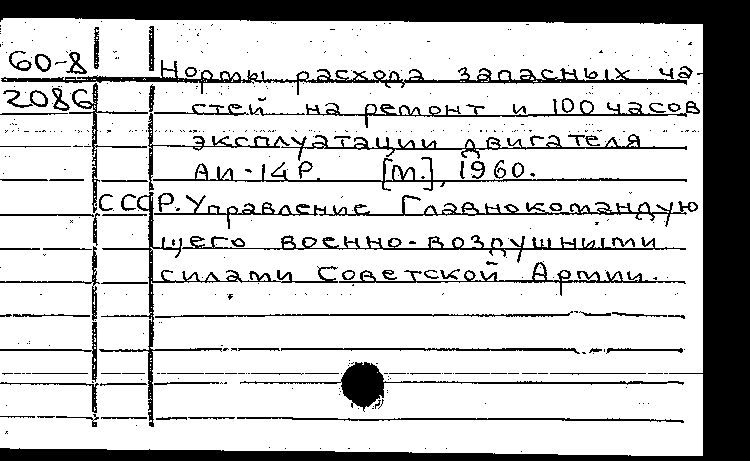 60-8 Нормы расхода запасных ча-
2086 стей на ремонт и 100 часов
эксплуатации двигателя
АИ-14Р. [М.], 1960.
СССР. Управление Главнокомандую
щего военно-воздушными
силами Советской Армии.